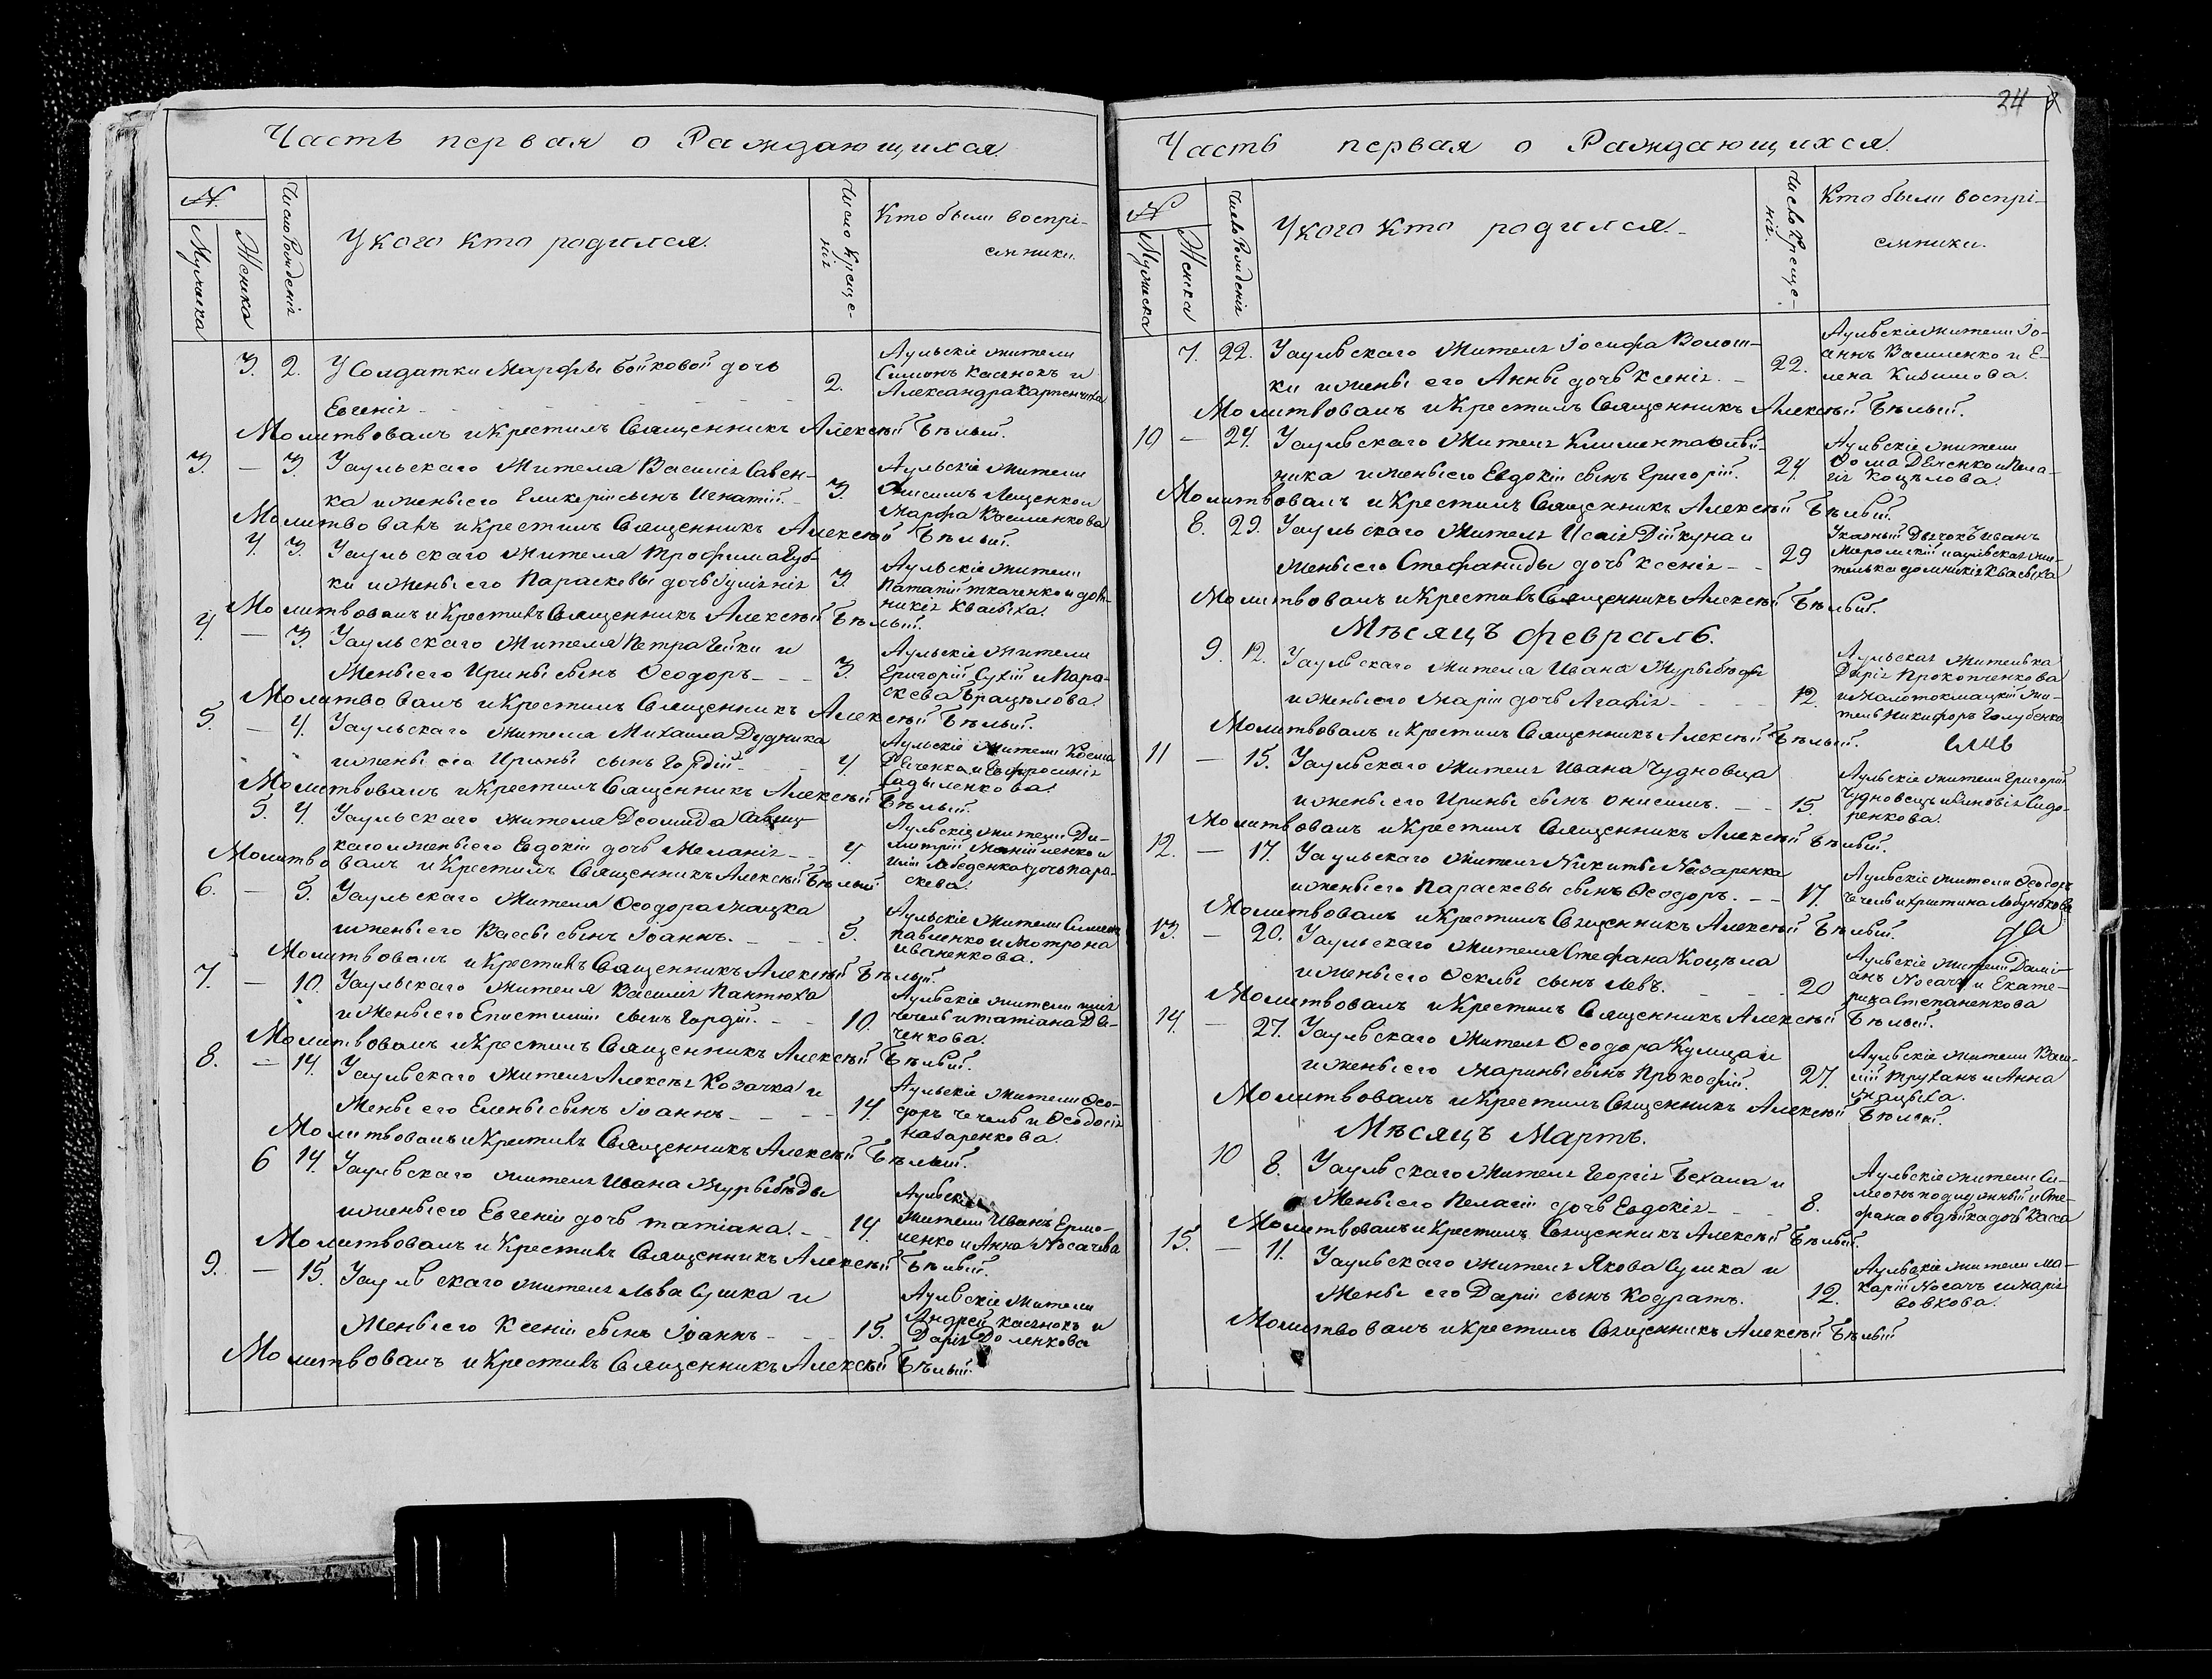 Часть первая о Раждающихся.
№.
Мужеска
Женска
Число Рожденія
У кого кто родился.
Число Креще-
нія
Кто были воспрі-
емники.
3. 2. У Солдатки Марфы бойковой дочь
Евгенія
2.
Аульскіе жители
Симонъ Касянокъ и
Александра Карпенчиха
Молитвовалъ и Крестилъ Священникъ Алексѣй Бѣлый.
3. — 3. У аульскаго жителя Василія Савен-
ка и жены его Гликеріи сынъ Игнатій.
3.
Аульскіе жители
Онисимъ Лещенко и
Марфа Василенкова
Молитвовалъ и Крестилъ Священникъ Алексѣй Бѣлый.
4. 3. У аульскаго жителя Трофима Губ-
ки и жены его Параскевы дочь Іуліанія
3.
Аульскіе жители
Патапій Ткаченко и дом-
никія Квасьиха.
Молитвовалъ и Крестилъ Священникъ Алексѣй Бѣлый.
4. — 3. У аульскаго жителя Петра Гейки и
Жены его Ирины сынъ Ѳеодоръ
3.
Аульскіе жители
Григорій Сухій и Пара-
скева Брацѣлова.
Молитвовалъ и Крестилъ Священникъ Алексѣй Бѣлый.
5. — 4. У аульскаго жителя Михаила Дудника
и жены его Ирины сынъ Гордій
4.
Аульскіе жители Косма
Дяченка и Евфросинія
Садыленкова.
Молитвовалъ и Крестилъ Священникъ Алексѣй Бѣлый.
5. 4. У аульскаго жителя Деомида Савиц-
каго и жены его Евдокіи дочь Меланія
4.
Аульскіе жители Ди-
митрій и
Лебеденка дочь пара-
скева.
Молитвовалъ и Крестилъ Священникъ Алексѣй Бѣлый
6. — 5. У аульскаго жителя Ѳеодора Мацка
и жены его Вассы сынъ Іоаннъ.
5.
Аульскіе жители
Павленко и Мотрона
Иваненкова.
Молитвовалъ и Крестилъ Священникъ Алексѣй Бѣлый.
7. — 10. У аульскаго жителя Василія Пантюха
и жены его Епистиміи сынъ Гордій.
10.
Аульскіе жители
Чечель и Татіана Дя-
ченкова.
Молитвовалъ и Крестилъ Священникъ Алексѣй Бѣлый.
8. — 14. У аульскаго жителя Алексѣя Козачка и
Жены его Елены сынъ Іоаннъ
14
Аульскіе жители Ѳео-
доръ Чечель и Ѳеодосія
Назаренкова.
Молитвовалъ и Крестилъ Священникъ Алексѣй Бѣлый.
6 14. У аульскаго жителя Ивана Журыбѣды
и жены его Евгеніи дочь татіана.
14.
Аульскіе
Жители Иванъ Ермо-
ленко и Анна Носачева
Молитвовалъ и Крестилъ Священникъ Алексѣй Бѣлый.
9. — 15. У аульскаго жителя Льва Сушка и
Жены его Ксеніи сынъ Іоаннъ
15.
Аульскіе жители
Андрей Касянокъ и
Дарія Доленкова
Молитвовалъ и Крестилъ Священникъ Алексѣй Бѣлый.
24
Часть первая о Раждающихся.
№
Мужеска
Женска
Число Рожденія
У кого кто родился.
Число Креще-
нія.
Кто были воспрі-
емники.
7. 22. У аульскаго жителя Іосифа Волош-
ки и жены его Анны дочь Ксенія.
22.
Аульскіе жители Іо-
аннъ Василенко и Е-
лена Кизимова.
Молитвовалъ и Крестилъ Священникъ Алексѣй Бѣлый.
10 — 24. У аульскаго жителя Климента
ника и жены его Евдокіи сынъ Григорій.
24.
Аульскіе жители
Ѳома Дяченко и Пела-
гія Коцѣлова.
Молитвовалъ и Крестилъ Священникъ Алексѣй Бѣлый.
8. 29. У аульскаго жителя Исаія Дійкуна и
жены его Стефаниды дочь Ксенія
29
Указный Дьячокъ Иванъ
и аульская жи-
телька домникія Квасьиха
Молитвовалъ и Крестилъ Священникъ Алексѣй Бѣлый.
Мѣсяцъ февраль.
9. 12. У аульскаго жителя Ивана Журыбѣды
и жены его Маріи дочь Агафія
12.
Аульская жителька
Дарія Прокопченкова
и Малотокмацкій жи-
тель Никифоръ Голубенко
Молитвовалъ и Крестилъ Священникъ Алексѣй Бѣлый.
11 — 15. У аульскаго жителя Ивана Чудновца
и жены его Ирины сынъ Онисимъ.
15.
Аульскіе жители Григорій
Чудновецъ и Зиновія Сидо-
ренкова.
Молитвовалъ и Крестилъ Священникъ Алексѣй Бѣлый.
12. — 17. У аульскаго жителя Никиты Назаренка
и жены его Параскевы сынъ Ѳеодоръ.
17.
Аульскіе жители Ѳеодоръ
Чечель и Христина Лабунькова
Молитвовалъ и Крестилъ Священникъ Алексѣй Бѣлый.
13. — 20. У аульскаго жителя Стефана Коцѣла
и жены его Ѳеклы сынъ Левъ.
20
Аульскіе жители Даміа-
анъ Носачъ и Екате-
рина Степаненкова
Молитвовалъ и Крестилъ Священникъ Алексѣй Бѣлый.
14. — 27. У аульскаго жителя Ѳеодора Кулицы и
и жены его Марины сынъ Прокофій.
27.
Аульскіе жители Васи-
лій Труханъ и Анна
Мацьиха.
Молитвовалъ и Крестилъ Священникъ Алексѣй Бѣлый.
Мѣсяцъ Мартъ.
10 8. У аульскаго жителя Георгія Бехала и
Жены его Пелагіи дочь Евдокія
8.
Аульскіе жители Си-
меонъ и Сте-
фана дочь Васса
Молитвовалъ и Крестилъ Священникъ Алексѣй Бѣлый.
15. — 11. У аульскаго жителя Якова Сушка и
Жены его Даріи сынъ Кодратъ.
12.
Аульскіе жители Ма-
карій Носачъ и Марія
Вовкова.
Молитвовалъ и Крестилъ Священникъ Алексѣй Бѣлый